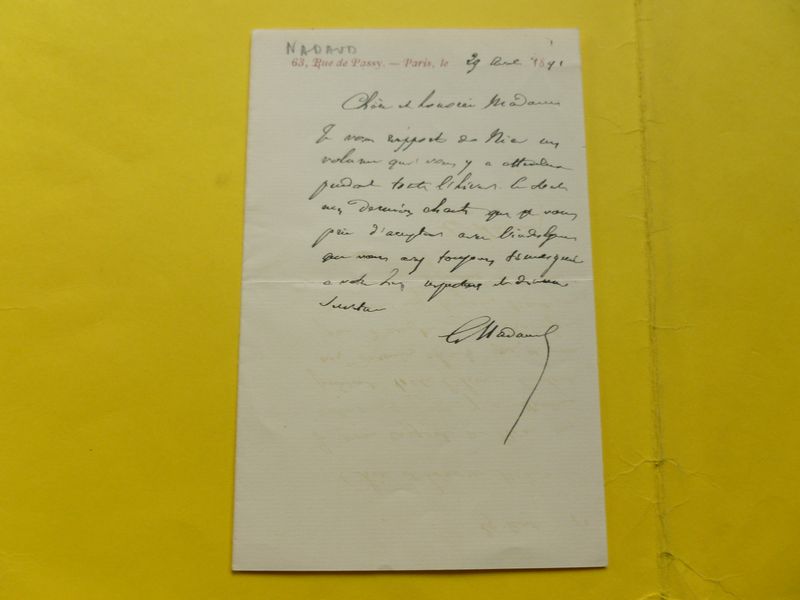 NADAUD
63, Rue de Passy. — Paris, le 29 Avril 1891
Chère et honorée Madame
Je vous rapporte de Nice un
volume qui vous y a attendu
pendant tout l'hiver. Ce sont
mes derniers chants que je vous
prie d'accepter avec l'indulgence
que vous avez toujours témoignée
à votre très respectueux et dévoué
serviteur
G. Nadaud